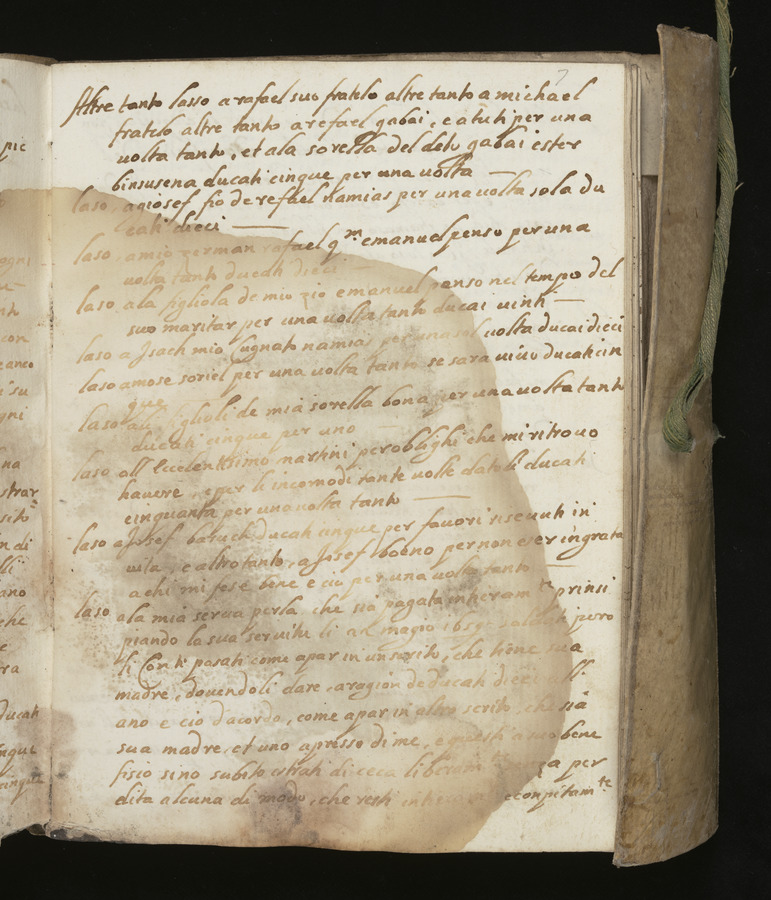 7
Altre tanto lasso a rafael suo fratelo altre tanto a michael
fratelo altre tanto a refael gabai, e a tuti per una
uolta tanto, et ala sorella del deto gabai ester
binsusena ducati cinque per una uolta
laso a giosef fio de refael namias per una uolta sola du
cati dieci
laso, a mio zerman rafael qm emanuel penso per una
uolta tanto ducati dieci
laso ala figliola de mio zio emanuel penso nel tempo del
suo maritar per una uolta tanto ducai uinti
laso a Isach mio Cugnato namias per una sol uolta ducai dieci
laso a mose soriel per una uolta tanto se sara uiuo ducati cin
que
laso alli figlioli de mia sorella bona per una uolta tanto
ducati cinque per uno
laso all Ecelentissimo martini per oblighi che mi ritrouo
hauere, e per li incomodi tante uolte datoli ducati
cinquanta per una uolta tanto
laso a Josef baruch ducati cinque per fauori riseuuti in
uita, e altro tanto, a Josef boeno per non eser ingrata
a chi mi fese bene e cio per una uolta tanto
laso ala mia serua perla che sia pagata interam.te prinsi
piando la sua seruitu li magio pero
li Conti pasati come apar in un scrito, che tiene sua
madre, douendoli dare, a ragion de ducati dieci all
ano e cio d'acordo, come apar in altro scrito, che sia
sua madre, et uno apresso di me, e questi a suo bene
fisio sino subito estrati di ceca liberam.te senza per
dita alcuna di modo, che resti conpitam.te
pic
ogni
con
i su
gni
na
strar
scito
n di
ano
che
e
ra
ducati
inque
cinque